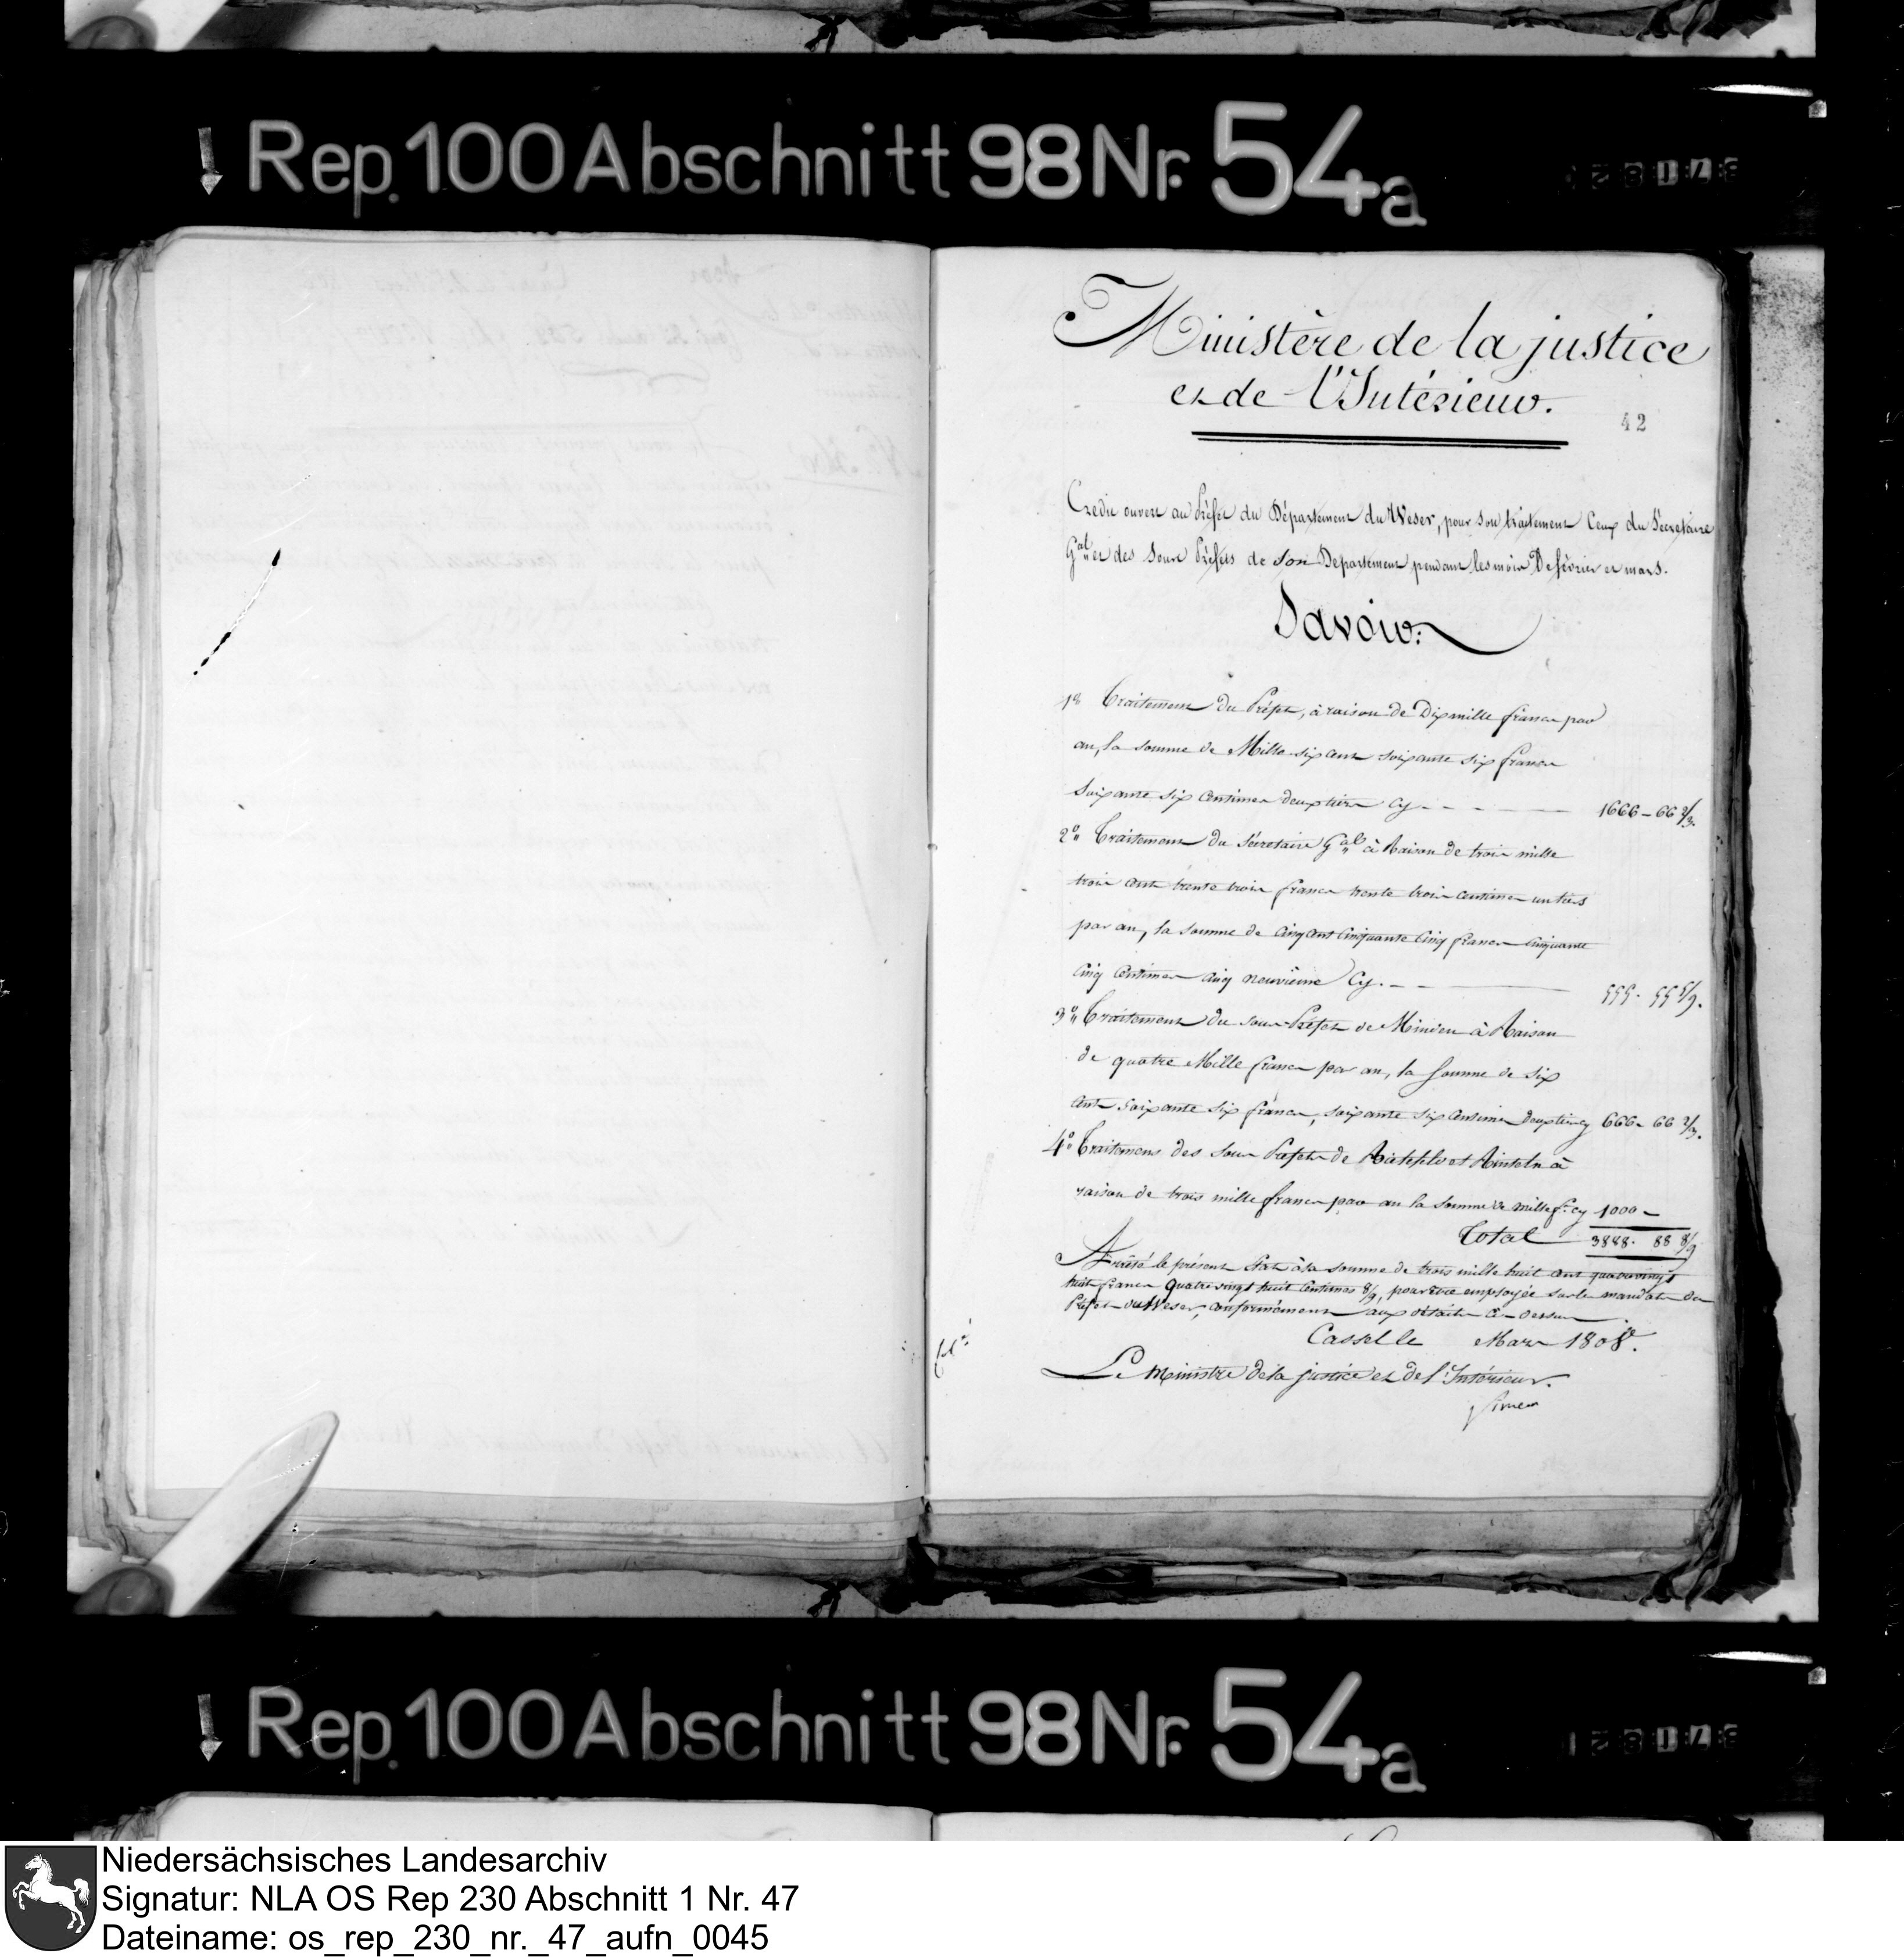 Rep. 100 Abschnitt 98 Nr. 54a
Ministère de la justice
et de l'Intérieur.
42
Credit ouvert au Préfet du Département du Weser, pour son traitement Ceux du Sécretaire
Gal et des Sous Préfets de son Département pendant les mois De février et mars.
Savoir:
1° Traitement du Préfet, à raison de Dix mille francs par
an, la somme de Mille six cent soixante six francs
soixante six Centimes deux tiers Cy - - - 1666 - 66 2/3.
2° Traitement du Sécretaire Gal à Raison de trois mille
trois cent trente trois francs trente trois centimes un tiers
par an, la somme de Cinq cent Cinquante Cinq francs Cinquante
Cinq Centimes Cinq neuvième Cy. - - 555 - 55 5/9.
3° Traitement du sous-Préfet de Minden à Raison
de quatre Mille francs par an, la somme de six
cent soixante six francs, soixante six Centimes deux tiers cy 666 - 66 2/3.
4° Traitemens des sous Préfets de et Rinteln à
raison de trois mille francs par an la somme de mille f. cy 1000 -
Total 3888. 88 8/9
Arrêté le présent État à la somme de trois mille huit cent quatre vingt
huit francs quatre vingt huit Centimes 8/9, pour être employée sur les mandats du
Préfet du Weser, conformément aux détails Ci-dessus.
Cassel le Mars 1808.
Le Ministre de la justice et de l'Intérieur.
Simeon
Rep. 100 Abschnitt 98 Nr. 54a
Niedersächsisches Landesarchiv
Signatur: NLA OS Rep 230 Abschnitt 1 Nr. 47
Dateiname: os_rep_230_nr._47_aufn_0045